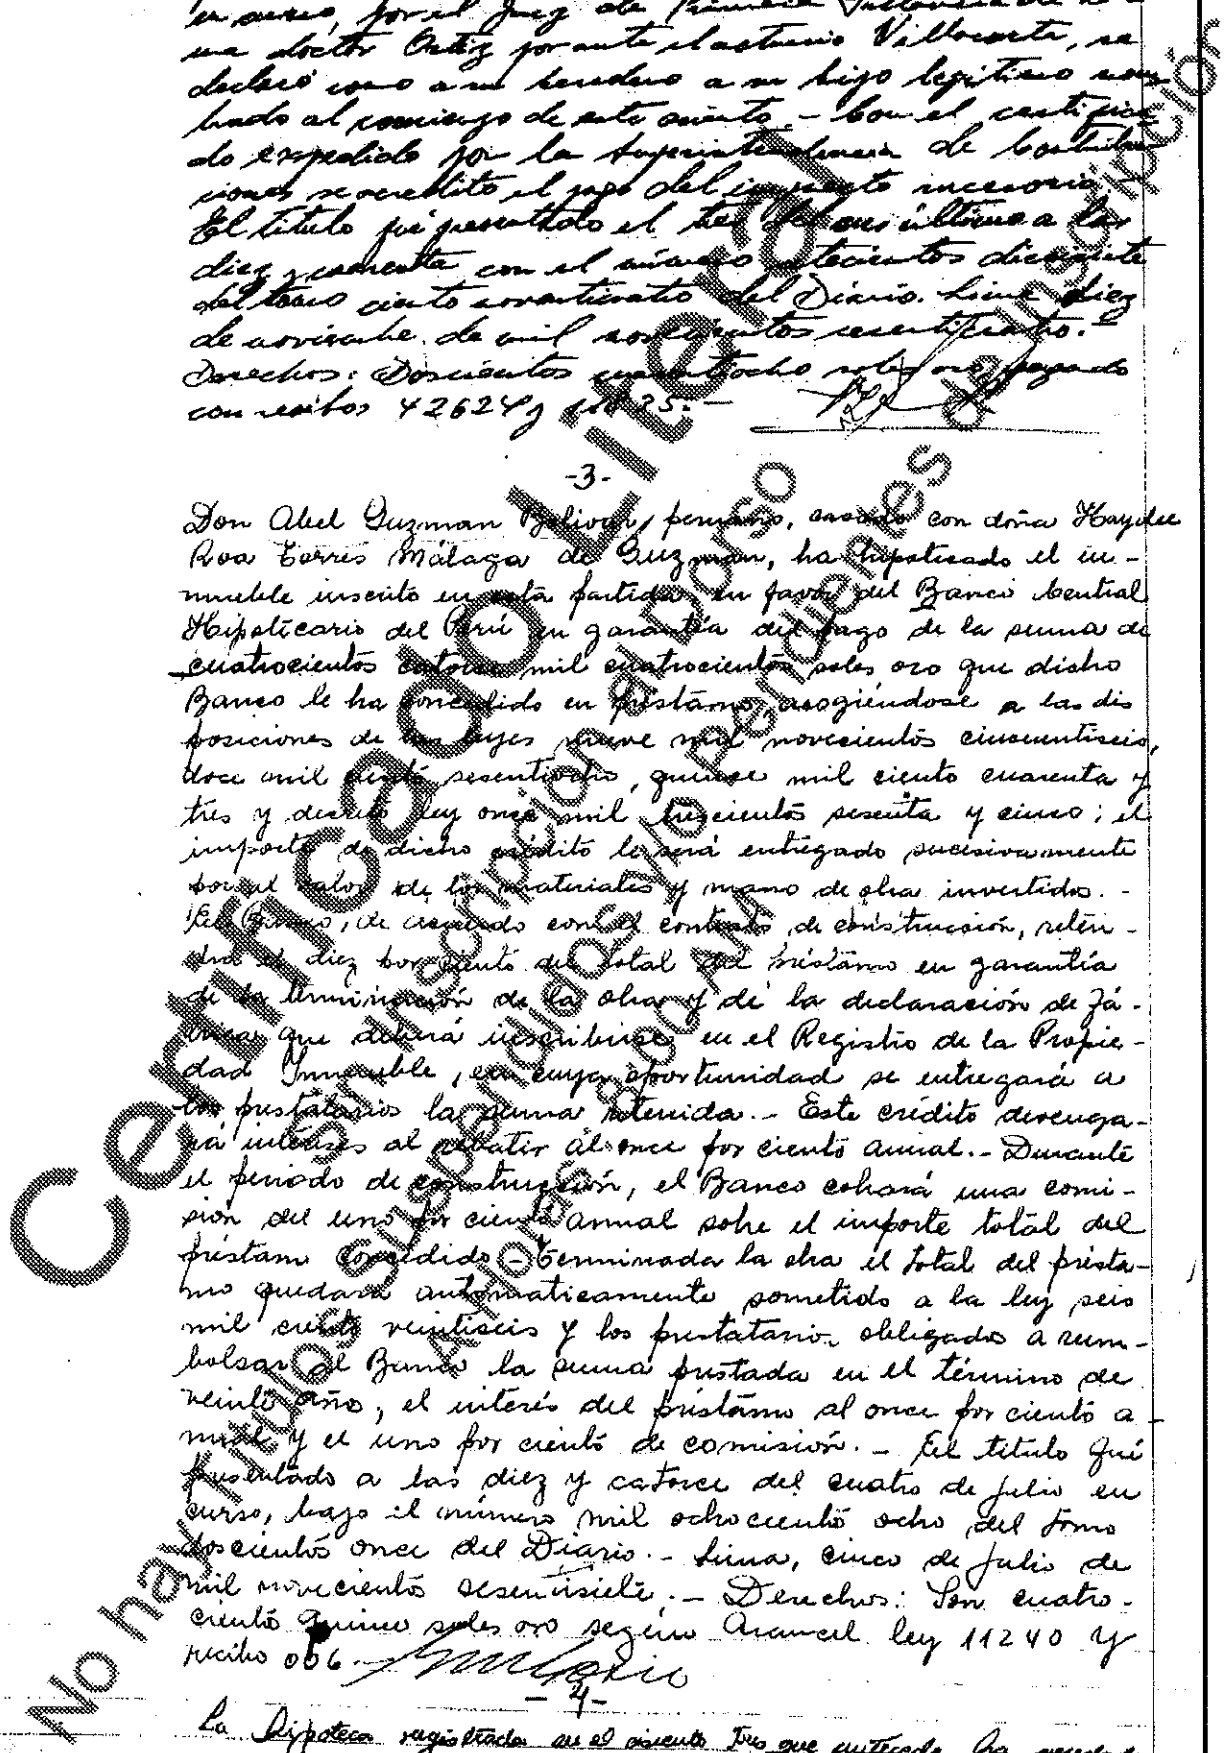 en curso, por el Juez de Primera Instancia de
doctor Ortiz por ante el actuario Villacorta, se
declaró como a su heredero a su hijo legítimo nom-
brado al comienzo de este asiento. - Con el certifica-
do expedido por la Superintendencia de Contribu-
ciones se acreditó el pago del impuesto sucesorio.
El título fué presentado el tres del mes último a las
diez y cuarenta con el número setecientos diecisiete
del tomo ciento noventicuatro del Diario. Lima diez
de noviembre de mil novecientos sesenticuatro. -
Derechos: Doscientos cuarentiocho soles oro pagado
con recibos 42624 y
-3-
Don Abel Guzman Bolivar, peruano, casado con doña Haydee
Rosa Torres Málaga de Guzman, ha hipotecado el in-
mueble inscrito en esta partida, en favor del Banco Central
Hipotecario del Perú en garantía del pago de la suma de
cuatrocientos catorce mil cuatrocientos soles oro que dicho
Banco le ha concedido en préstamo, acogiéndose a las dis
posiciones de las leyes nueve mil novecientos cincuentiseis,
doce mil ciento sesentiocho, quince mil ciento cuarenta y
tres y decreto ley once mil trescientos sesenta y cinco; el
importe de dicho crédito le será entregado sucesivamente
por el valor de los materiales y mano de obra invertidos. -
El Banco, de acuerdo con el contrato de construcción, reten-
drá el diez por ciento del total del préstamo en garantía
de la terminación de la obra y de la declaración de fá-
brica que deberá inscribirse en el Registro de la Propie-
dad Inmueble, en cuya oportunidad se entregará a
los prestatarios la suma retenida. - Este crédito devenga-
rá intereses al rebatir al once por ciento anual. - Durante
el periodo de construcción, el Banco cobrará una comi-
sión del uno por ciento annal sobre el importe total del
préstamo concedido - Terminada la obra el total del présta-
mo quedará automáticamente sometido a la ley seis
mil ciento veintiseis y los prestatarios obligados a reem-
bolsar al Banco la suma prestada en el término de
veinte año, el interés del préstamo al once por ciento a-
nual y el uno por ciento de comisión. - El título fué
presentado a las diez y catorce del cuatro de julio en
curso, bajo el número mil ochociento ocho del tomo
doscientos once del Diario. - Lima, cinco de julio de
mil novecientos sesentisiete. - Derechos: Son cuatro-
ciento quince soles oro según Arancel ley 11240 y
recibo 006. -
- 4 -
La Hipoteca registrada en el asiento tres que antecede ha
Certificado Literal
No hay Títulos Suspendidos y/o Pendientes de Inscripción